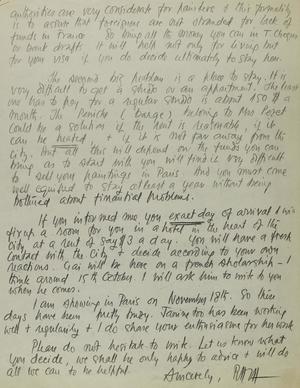 authorities are very considerate for painters & this formality
is to assure that foreigners are not stranded for lack of
funds in France So bring all the money you can in T. Cheques
or bank drafts. It will hold not only for living but
for your visa if you do decide ultimately to stay here.
The second big problem is a place to stay. It is
very difficult to get a studio or an apartment. The least
one has to pay for a regular studio is about 150 $ a
month. The Peniche (barge) belonging to Mrs
could be a solution if the rent is reasonable, is it
can be heated & it is not far away from the
City. But all this will depend on the funds you can
bring as to start with you will find it very difficult
to sell your paintings in Paris. And you must come
well equipped to stay at least a year without being
bothered about financial problems.
If you informed me exact day of arrival I will
fix up a room for you in a hotel in the heart of the
city at a rent of say $3 a day. You will have a fresh
contact with the City & decide according to your own
reactions. Gai will be here on a french scholarship — I
think around 15 October. I will ask him to write to you
when he comes.
I am showing in Paris on November 18th. So these
days have been pretty busy. Janine too has been working
well & regularly & I do share your enthusiasm for her work
Please do not hesitate to write. Let us know what
you decide, we shall be only happy to advice & will do
all we can to be helpful.
Sincerely,